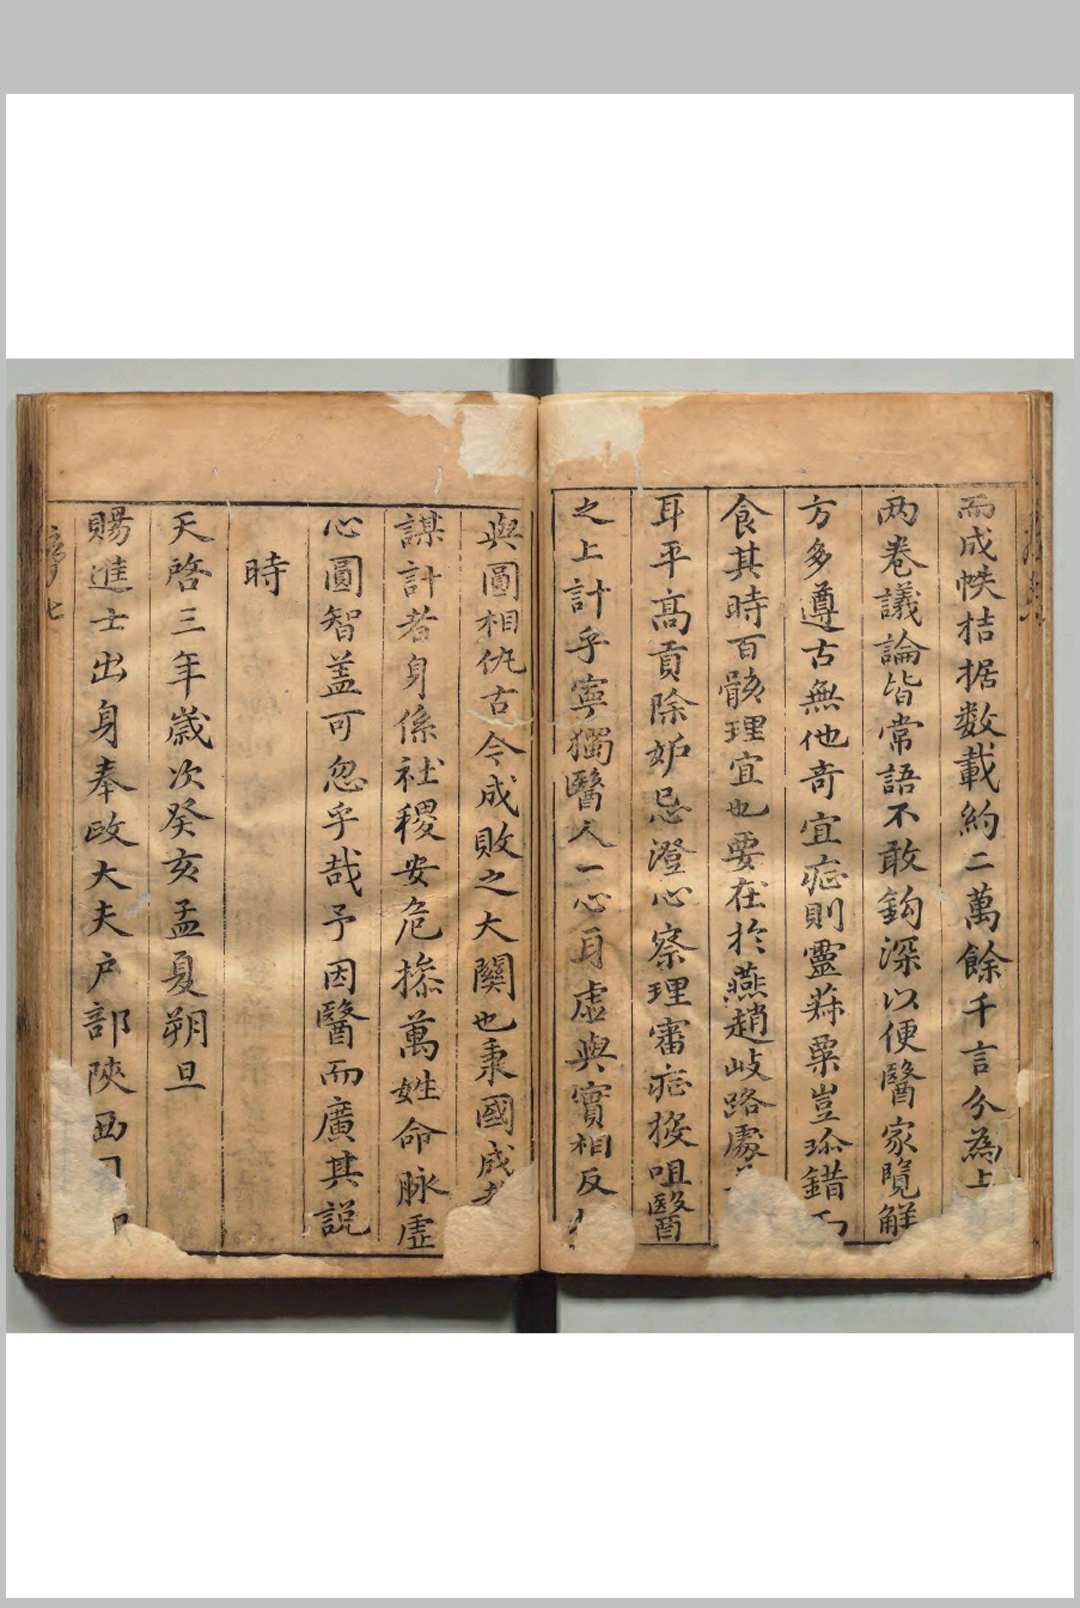 而成帙拮据数載約二萬餘千言分為上
两卷議論皆常語不敢鈎深以便醫家覽觧
方多遵古無他竒宜症則靈蔴粟豈珎錯
食其時百骸理宜也要在於燕趙岐路處
耳平髙貢除妒忌澄心察理審症按咀醫
之上計乎寧獨醫人一心耳虚與實相反
與圓相仇古今成敗之大關也秉國成
謀計者身係社稷安危㨫萬姓命脉虚
心圓智盖可忽乎哉予因醫而廣其説
時
天啓三年嵗次癸亥孟夏朔旦
賜進士出身奉政大夫户部陝西司
序
七